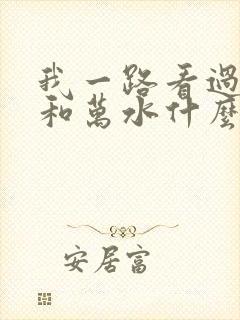 我一路看過
和萬水什麼
安居富